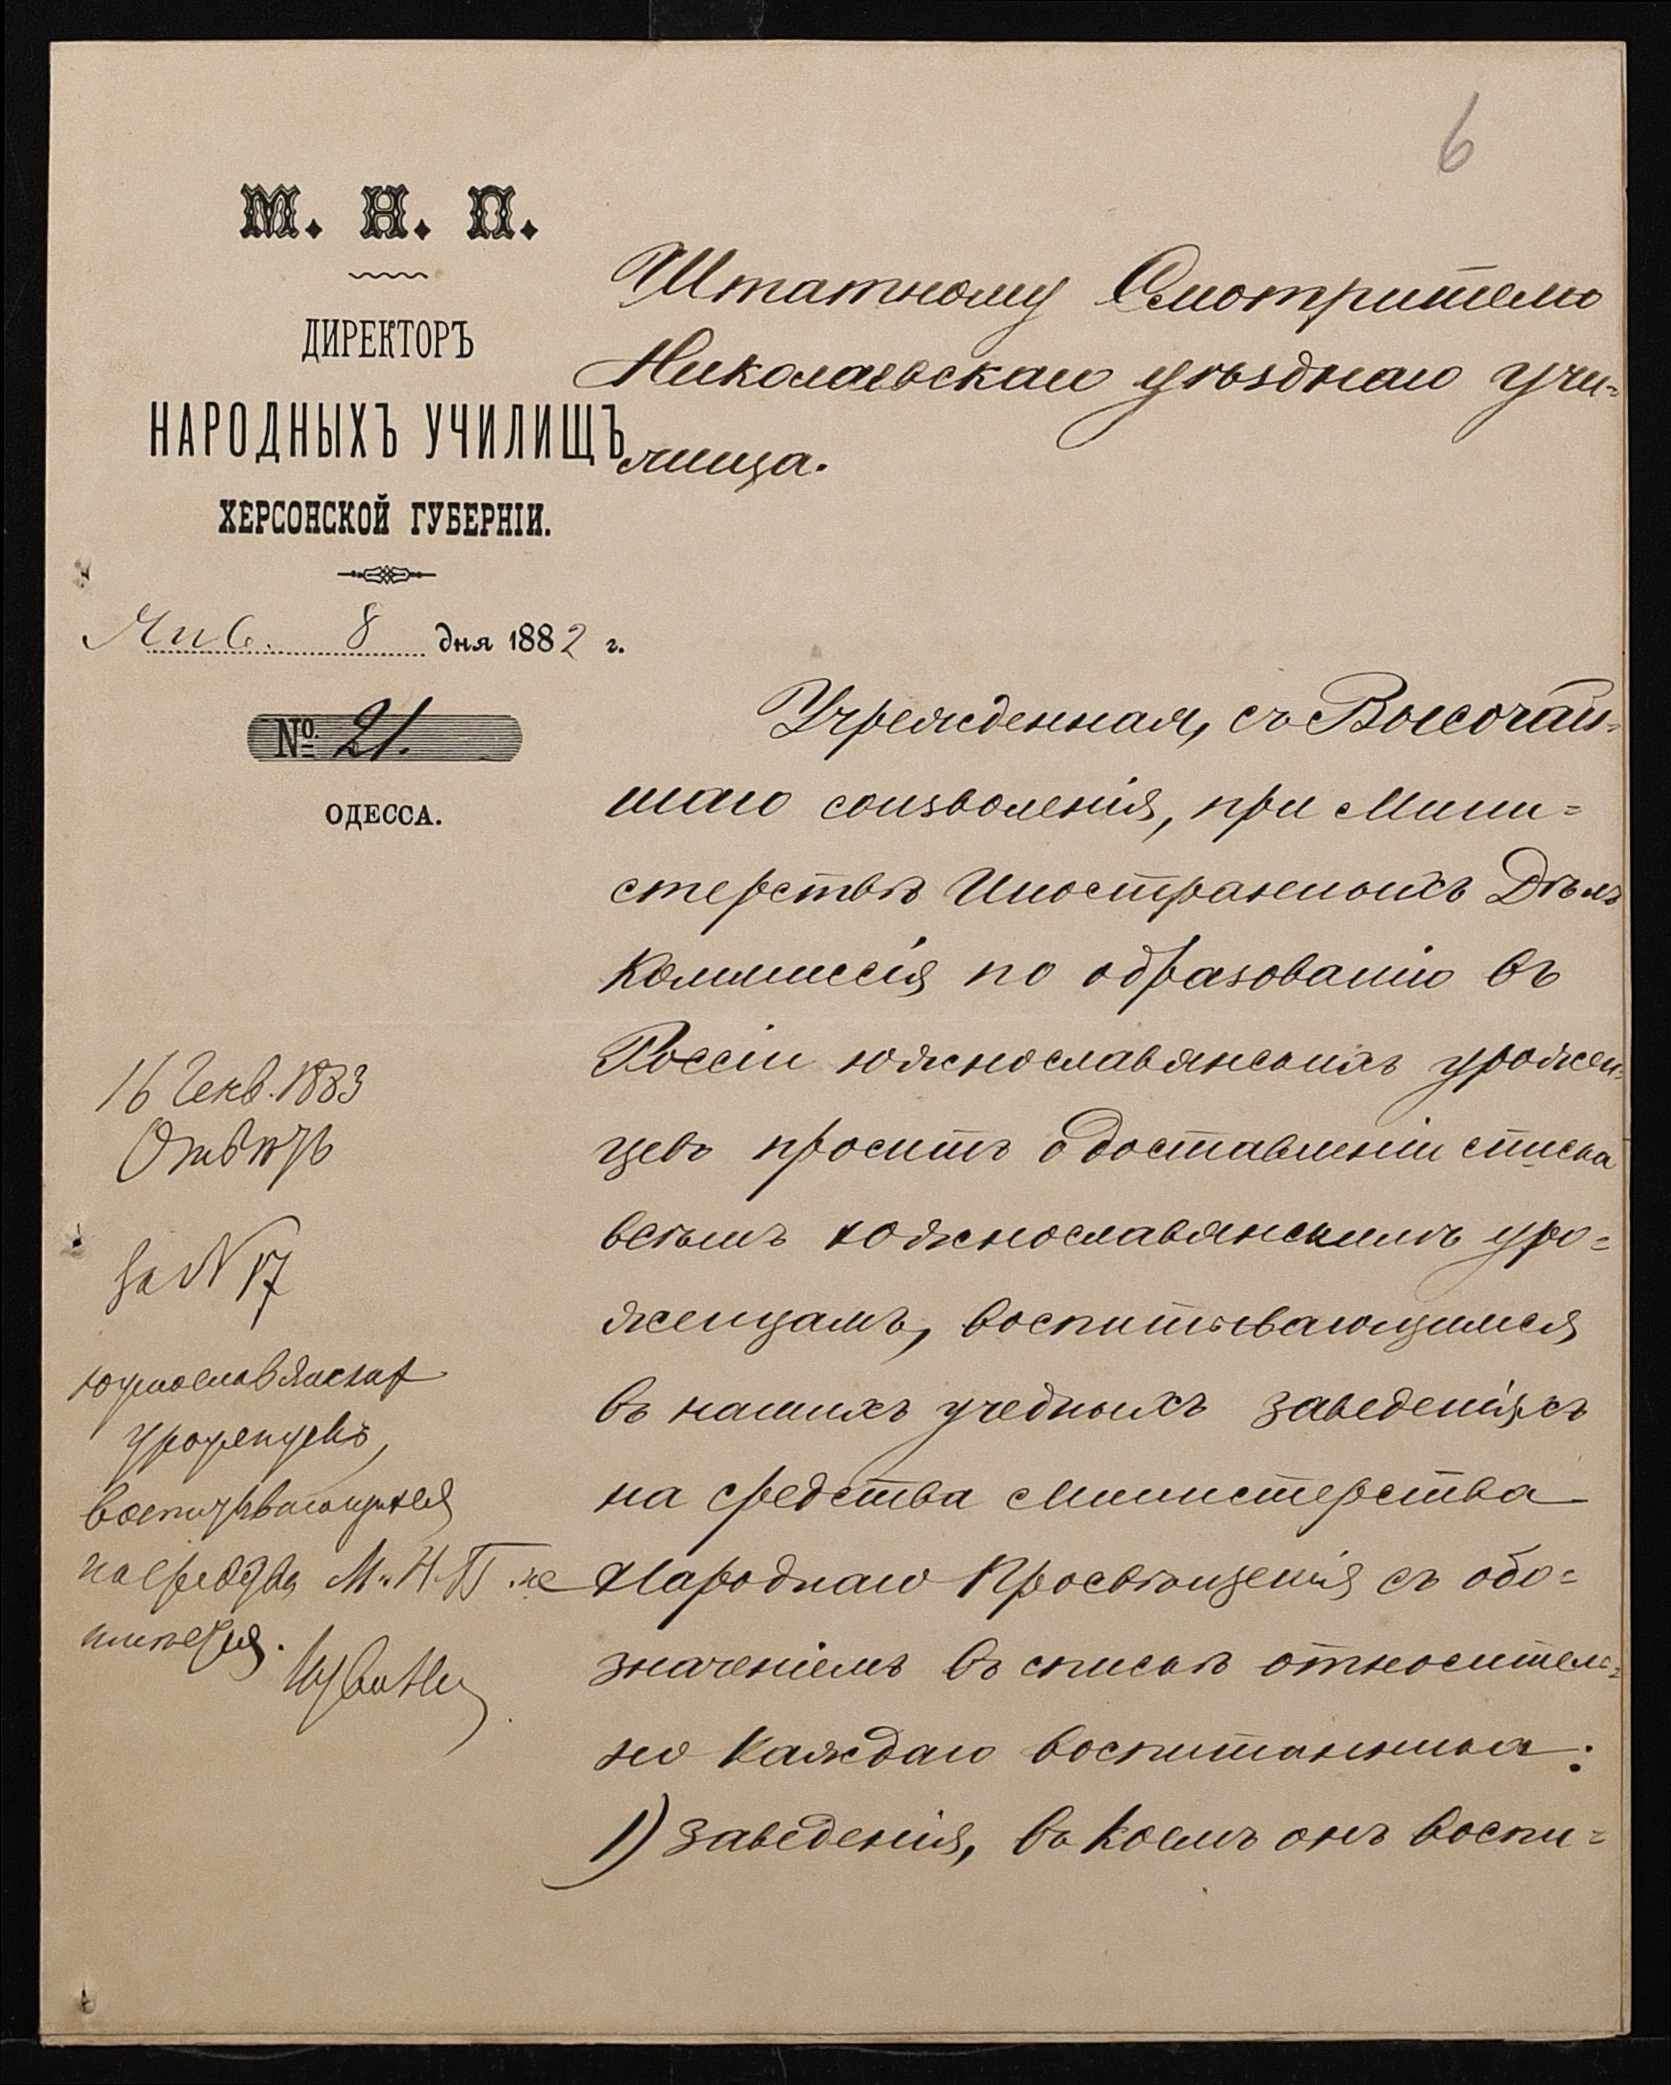 6
М. Н. П.
ДИРЕКТОРЪ
НАРОДНЫХЪ УЧИЛИЩЪ
ХЕРСОНСКОЙ ГУБЕРНІИ.
Янв. 8 дня 1882 г.
№ 21.
ОДЕССА.
Штатному Смотрителю
Николаевскаго уѣзднаго учи=
лища.
Учрежденная, съ Высочай=
шаго соизволенія, при Мини=
стерствѣ Иностранныхъ Дѣлъ
Коммиссія по образованію въ
Россіи южнославянскихъ урожен=
цевъ проситъ о доставленіи списка
всѣмъ южнославянскимъ уро=
женцамъ, воспитывающимся
въ нашихъ учебныхъ заведеніяхъ
на средства Министерства
Народнаго Просвѣщенія съ обо=
значеніемъ въ спискѣ относитель=
но каждаго воспитанника:
1) Заведенія, въ коемъ онъ воспи=
16 Генв. 1883
Отвѣтъ
за N 17
южнославянскихъ
уроженцевъ,
воспитывающихся
на средства М. Н. П. не
имѣется.